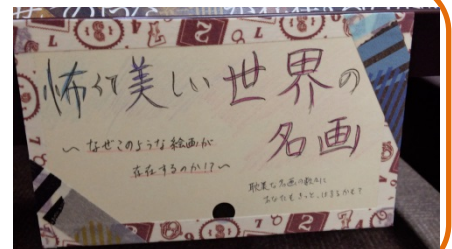 怖くて美しい世界の
名画
～なぜこのような絵画が
存在するのか!?～
耽美な名画の数々に
あなたもきっと、はまるかも?